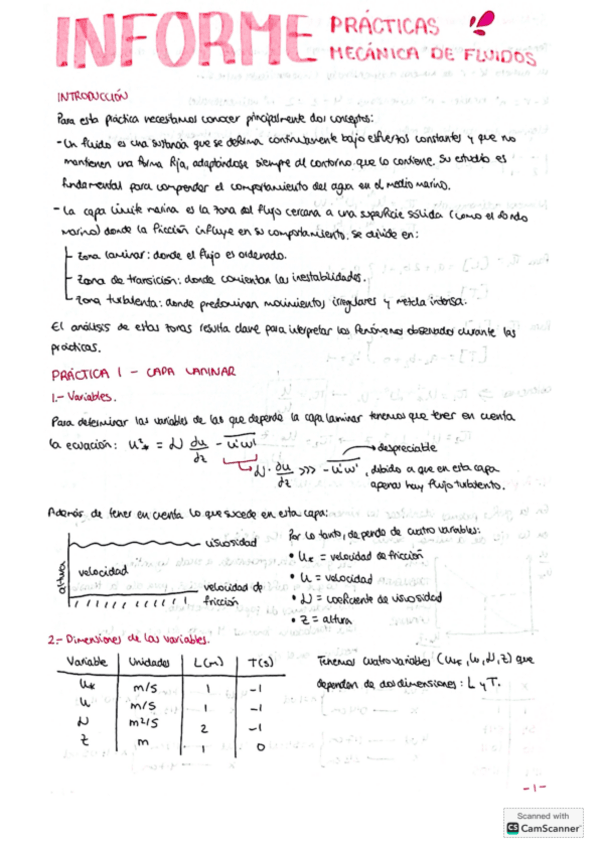 INFORME PRÁCTICAS
MECÁNICA DE FLUIDOS
INTRODUCCIÓN
Para esta práctica necesitamos conocer principalmente dos conceptos:
- Un fluido es una sustancia que se deforma continuamente bajo esfuerzos constantes y que no
mantienen una forma fija, adaptándose siempre al contorno que lo contiene. Su estudio es
fundamental para comprender el comportamiento del agua en el medio marino.
- La capa límite marina es la zona del flujo cercana a una superficie sólida (como el fondo
marino) donde la fricción influye en su comportamiento. se divide en:
Zona laminar: donde el flujo es ordenado.
Zona de transición: donde comienzan las inestabilidades.
Zona turbulenta: donde predominan movimientos irregulares y mezcla intensa.
El análisis de estas zonas resulta clave para interpretar los fenómenos observados durante las
prácticas.
PRÁCTICA 1 - CAPA LAMINAR
1.- Variables.
Para determinar las variables de las que depende la capa laminar tenemos que tener en cuenta
la ecuación: u²* = ν du/dz - u'w'
despreciable
ν · du/dz >>> - u'w', debido a que en esta capa
apenas hay flujo turbulento.
Además de tener en cuenta lo que sucede en esta capa:
altura
viscosidad
velocidad
velocidad de
fricción
Por lo tanto, depende de cuatro variables:
• u* = velocidad de fricción
• u = velocidad
• ν = coeficiente de viscosidad
• z = altura
2.- Dimensiones de las variables.
Variable Unidades L(m) T(s)
u* m/s 1 -1
u m/s 1 -1
ν m²/s 2 -1
z m 1 0
Tenemos cuatro variables (u*, u, ν, z) que
dependen de dos dimensiones: L y T.
-1-
Scanned with
CS CamScanner